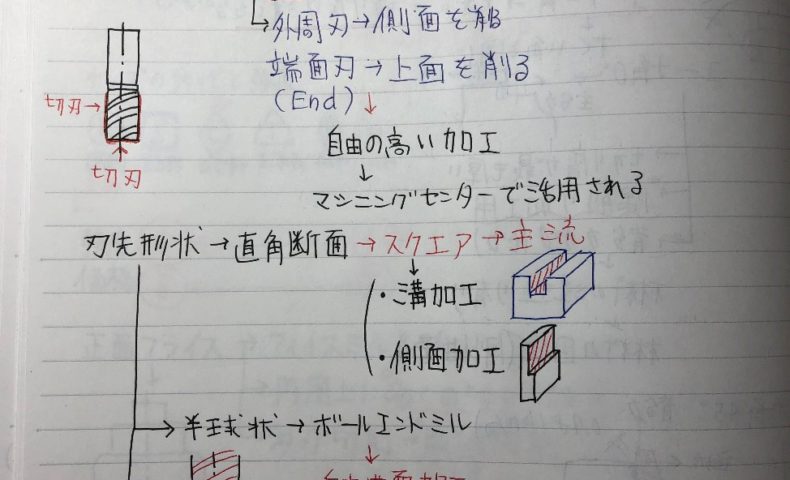 外周刃→側面を削る
端面刃→上面を削る
(End)
切刃→
切刃
自由の高い加工
マシニングセンターで活用される
刃先形状→直角断面→スクエア→主流
・溝加工
・側面加工
半球状→ボールエンドミル